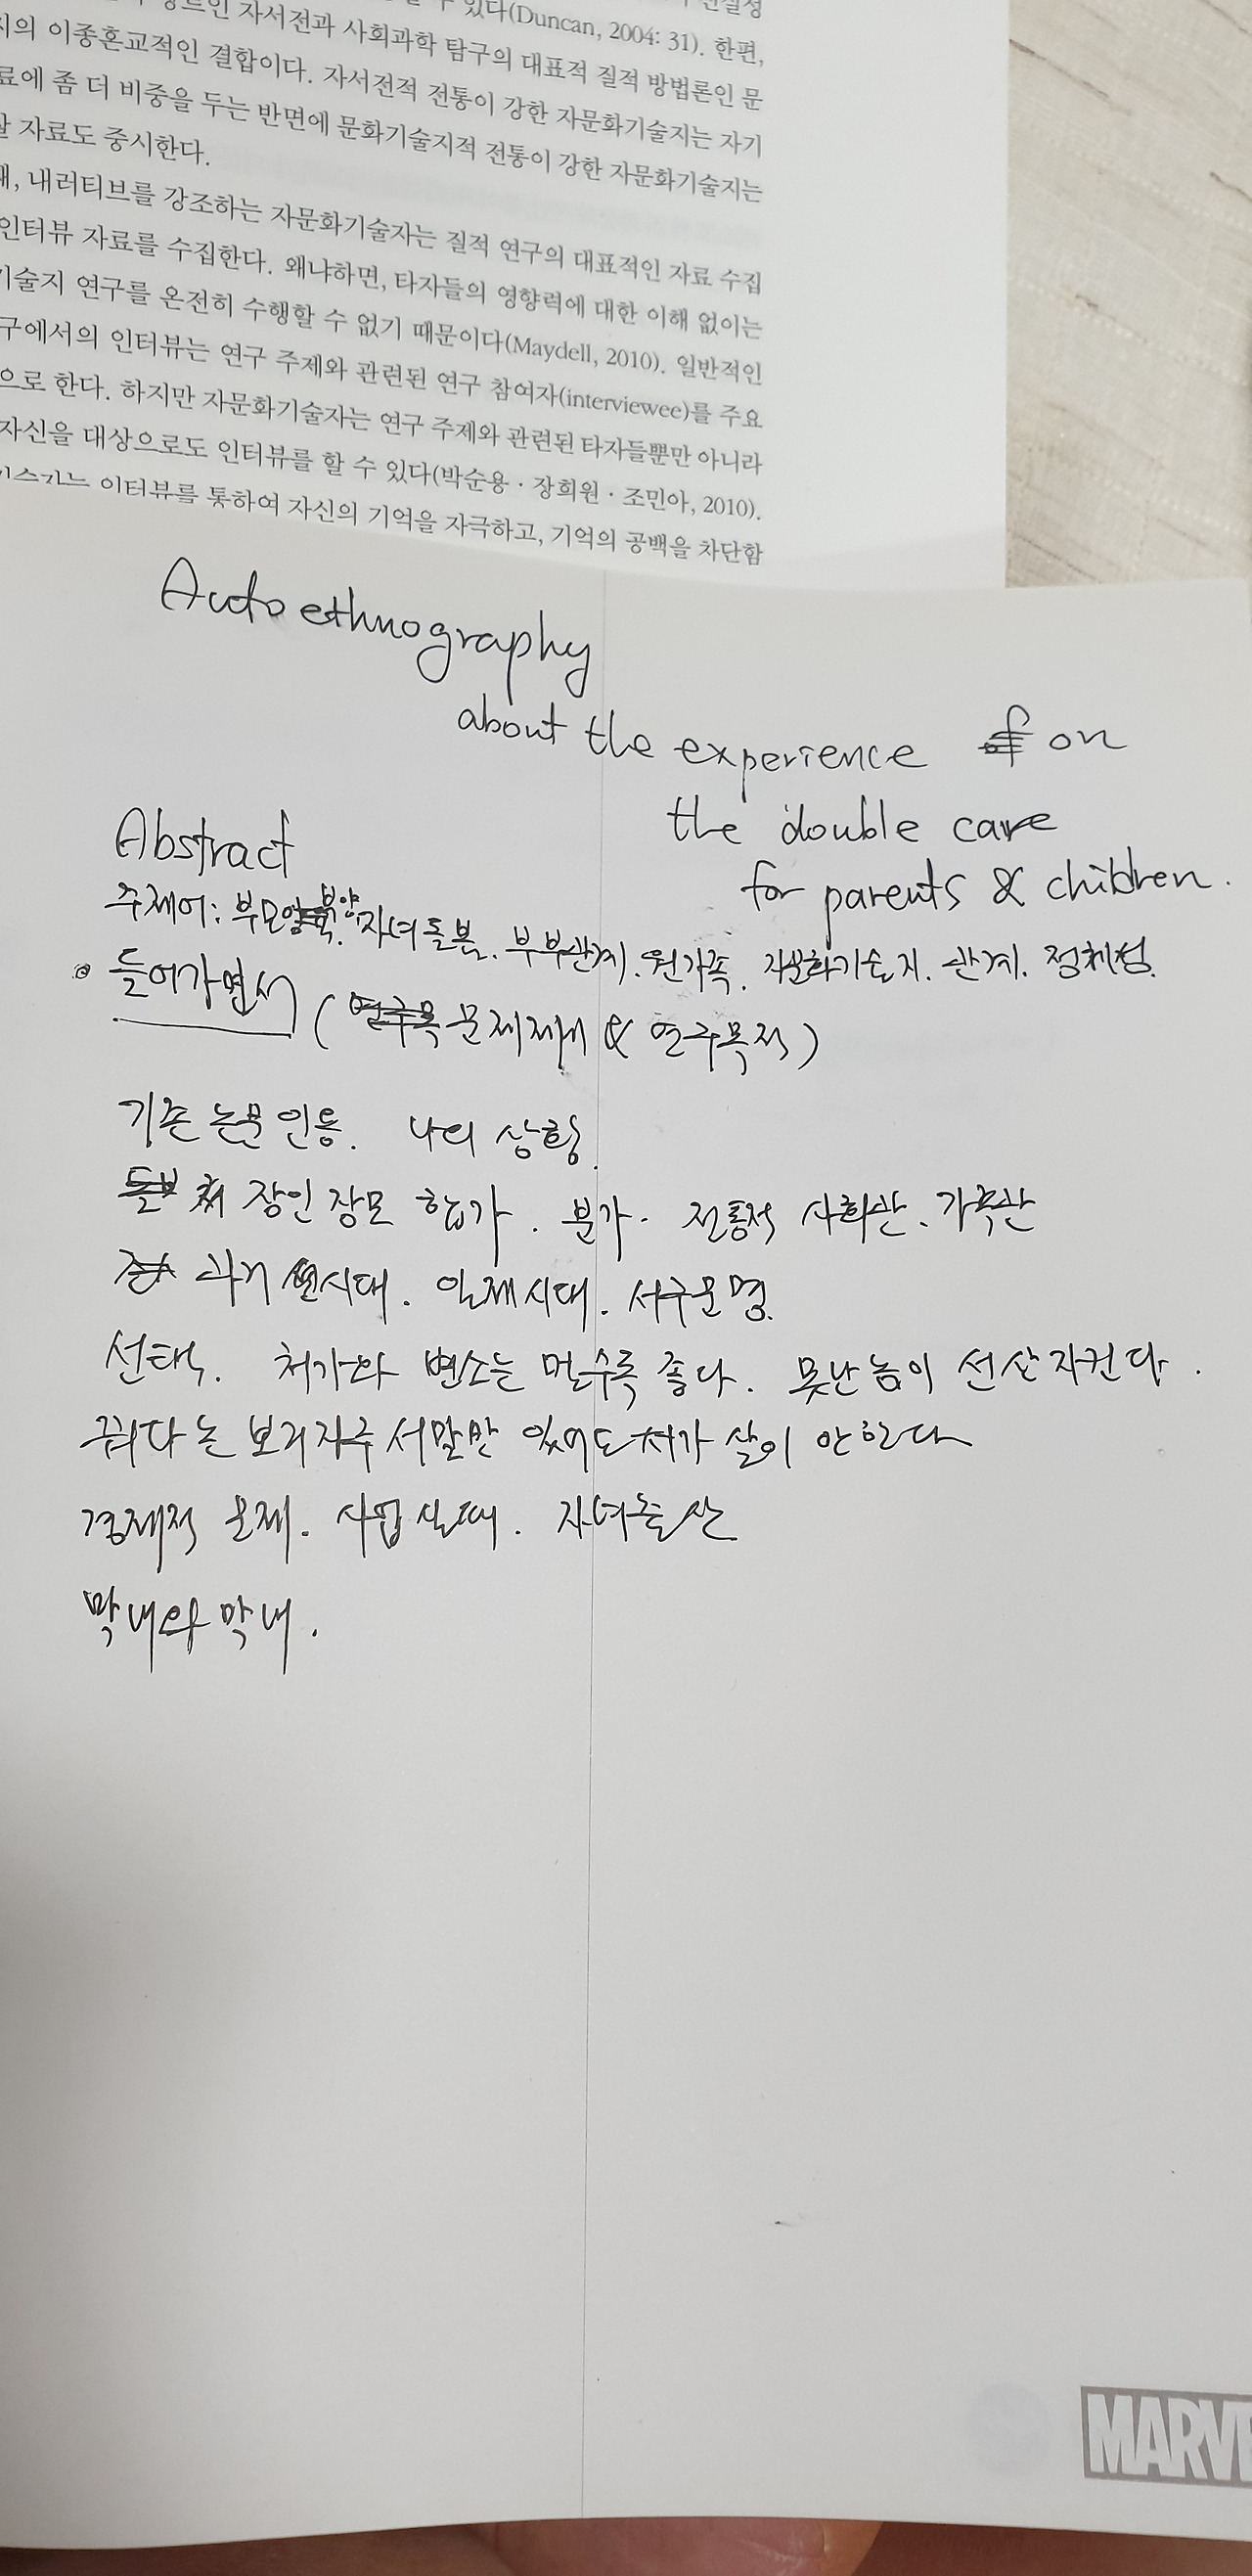 있다(Duncan, 2004: 31). 한편,
인 자서전과 사회과학 탐구의 대표적 질적 방법론인 문
의 이종혼교적인 결합이다. 자서전적 전통이 강한 자문화기술지는 자기
료에 좀 더 비중을 두는 반면에 문화기술지적 전통이 강한 자문화기술지는
자료도 중시한다.
내러티브를 강조하는 자문화기술자는 질적 연구의 대표적인 자료 수집
인터뷰 자료를 수집한다. 왜냐하면, 타자들의 영향력에 대한 이해 없이는
기술지 연구를 온전히 수행할 수 없기 때문이다(Maydell, 2010). 일반적인
구에서의 인터뷰는 연구 주제와 관련된 연구 참여자(interviewee)를 주요
으로 한다. 하지만 자문화기술자는 연구 주제와 관련된 타자들뿐만 아니라
자신을 대상으로도 인터뷰를 할 수 있다(박순용 · 장희원 · 조민아, 2010).
인터뷰를 통하여 자신의 기억을 자극하고, 기억의 공백을 차단함
Autoethnography
about the experience on
the double care
for parents & children.
Abstract
주제어: 부모 부양. 자녀돌봄. 부부관계. 원가족. 자문화기술지. 관계. 정체성.
들어가면서 (문제제기 & 연구목적)
기존 논문 인용. 나의 상황.
장인 장모 합가. 분가. 전통적 사회관. 가족관
과거 시대. 일제시대. 서구문명.
선택. 처가와 변소는 멀수록 좋다. 못난 놈이 선산 지킨다.
꿔다 논 보리자루 서말만 있어도 처가 살이 안한다
경제적 문제. 사업실패. 자녀출산
막내와 막내.
MARV